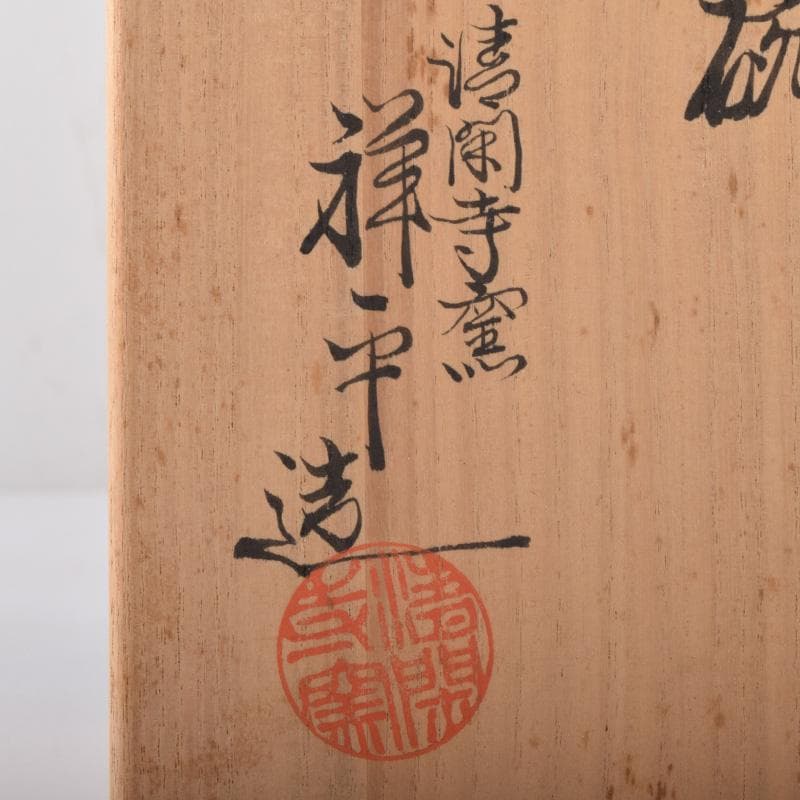 碗
清閑寺窯
祥平造
清閑寺窯